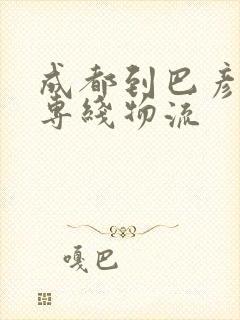 成都到巴彦
専綫物流
嘎巴